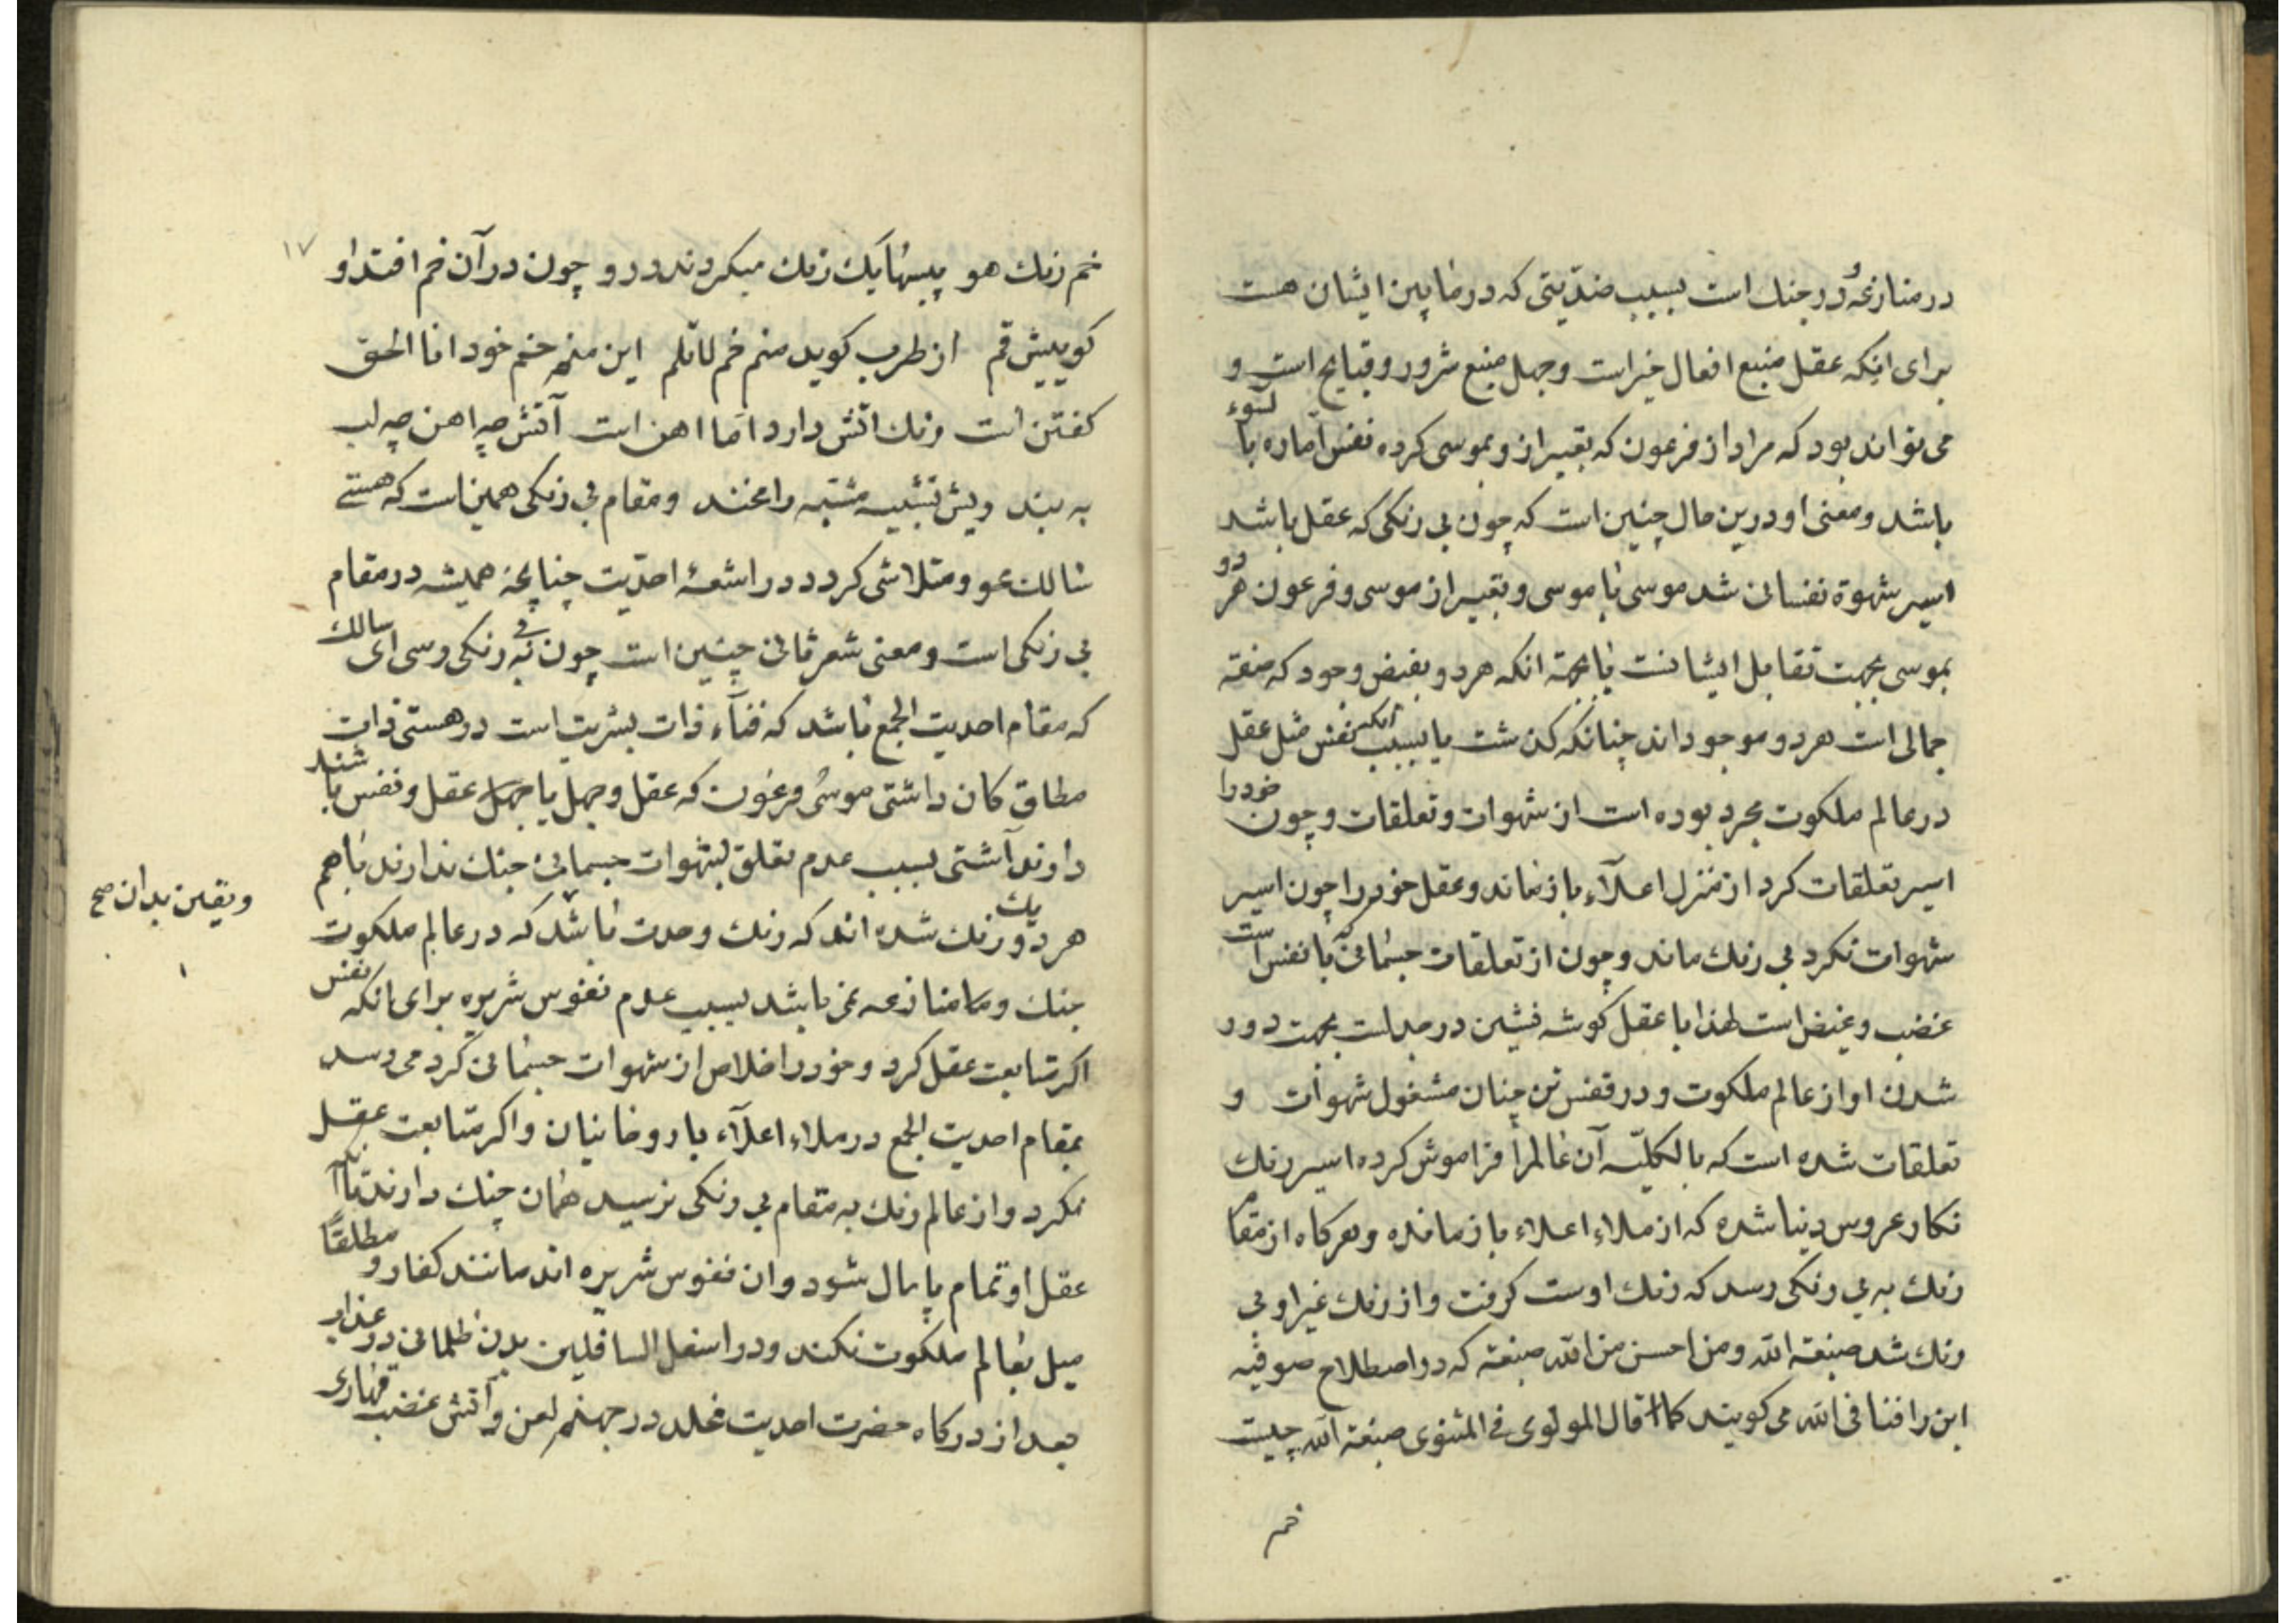 در منازعه و در جنك است بسبب ضدّيتى كه در مابين ايشان هست
براى انكه عقل منبع افعال خير است وجهل منبع شرور و قبايح است و
مى تواند بود كه مراد از فرعون كه تعبير از و بموسى كرده نفس امّاره بالسّوء
باشد ومعنى او درين حال چنين است كه چون بى رنكى كه عقل باشد
اسير شهوة نفسانى شد موسى با موسى وتعبير از موسى وفرعون هر دو
بموسى بجهت تقابل ايشانست يا بجهة انكه هر دو بفيض وجود كه صفة
جمالى است هر دو موجود اند چنانكه كذشت يا بسبب انكه نفس مثل عقل
در عالم ملكوت مجرد بوده است از شهوات وتعلقات وچون خود را
اسير تعلقات كرد از منزل اعلاء باز ماند وعقل خود را چون اسير
شهوات نكرد بى رنك ماند وچون از تعلقات جسمانى كه با نفس است
غضب وغيض است لهذا با عقل كوشه نشين در جدلست بجهت دور
شدن او از عالم ملكوت و در قفس تن چنان مشغول شهوات و
تعلقات شده است كه بالكليّه آن عالم را فراموش كرده اسير رنك
نكار عروس دنيا شده كه از ملاء اعلاء باز مانده وهركاه از مقام
رنك به بى رنكى رسد كه رنك اوست كرفت واز رنك غير او بى
رنك شد صبغة الله ومن احسن من الله صبغة كه در اصطلاح صوفيه
اين را فنا فى الله مى كويند كما قال المولوى فى المثنوى صبغة الله چيست
خم
١٧
خم رنك هو پيسها يك رنك ميكردند درو چون در آن خم افتد او
كوييش قم از طرب كويد منم خم لا تلم اين منم خم خود انا الحق
كفتن است رنك اتش دارد امّا اهن است آتش چه اهن چه لب
به بند ريش تشبيه مشبّه را مخند ومقام بى رنكى همين است كه هستى
سالك محو ومتلاشى كردد در اشعهٔ احدّيت چنانچه هميشه در مقام
بى رنكى است ومعنى شعر ثانى چنين است چون به بى رنكى رسى اى سالك
كه مقام احديت الجمع باشد كه فنآء ذات بشريت است در هستى ذات
مطلق كان داشتى موسى وفرعون كه عقل وجهل يا عقل ونفس باشند
دارند آشتى بسبب عدم تعلق بشهوات جسمانى جنك ندارند با هم
ويقين بدان صح
هر دو يك رنك شده اند كه رنك وحدت باشد كه در عالم ملكوت
جنك و منازعه نمى باشد بسبب عدم نفوس شريره براى انكه نفس
اكر متابعت عقل كرد وخود را خلاص از شهوات جسمانى كرد مى رسد
بمقام احديت الجمع در ملاء اعلآء با روحانيان واكر متابعت عقل
نكرد واز عالم رنك به مقام بى رنكى نرسيد همان جنك دارند تا آنكه
عقل او تمام پايمال شود وان نفوس شريره اند مانند كفار و مطلقًا
ميل بعالم ملكوت نكند ودر اسفل السافلين بدن ظلمانى در عذاب
بعد از دركاه حضرت احديت مخلد در جهنم لعن وآتش غضب قهارى